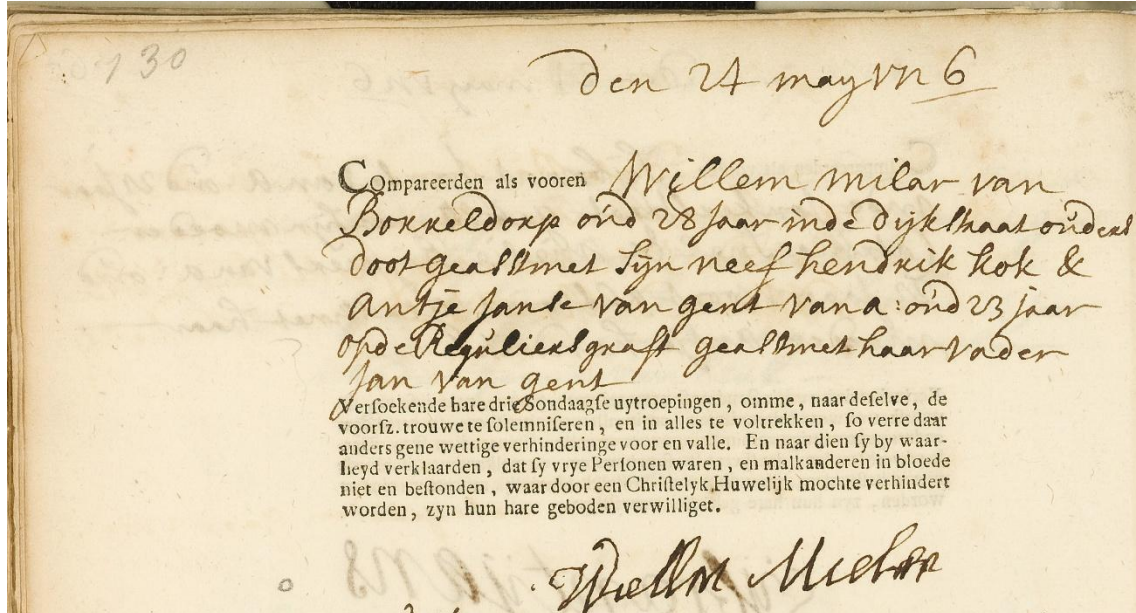 130
den 24 may 1726
Compareerden als vooren Willem milar van
Borkeldorp oud 28 Jaar inde dijkstraat ouders
doot geasstmet Sijn neef hendrik kok &
antje Janse van gent van a: oud 23 jaar
opde Reguliersgraft geasstmet haar vader
Jan van gent
Versoekende hare drie Sondaagse uytroepingen, omme, naar deselve, de
voorsz. trouwe te solemniseren, en in alles te voltrekken, so verre daar
anders gene wettige verhinderinge voor en valle. En naar dien sy by waar-
heyd verklaarden, dat sy vrye Personen waren, en malkanderen in bloede
niet en bestonden, waar door een Christelyk Huwelijk mochte verhindert
worden, zyn hun hare geboden verwilliget.